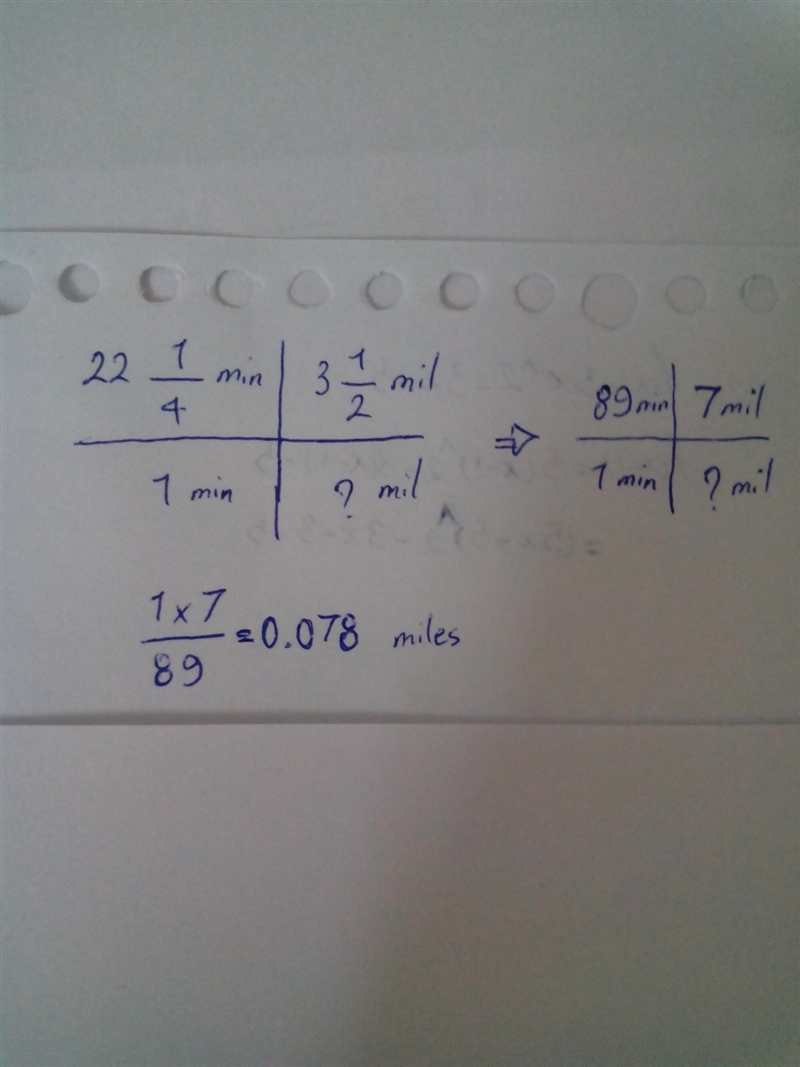 22 1/4 min | 3 1/2 mil ⇒ 89 min | 7 mil
1 min | ? mil 1 min | ? mil
1 x 7 / 89 = 0.078 miles